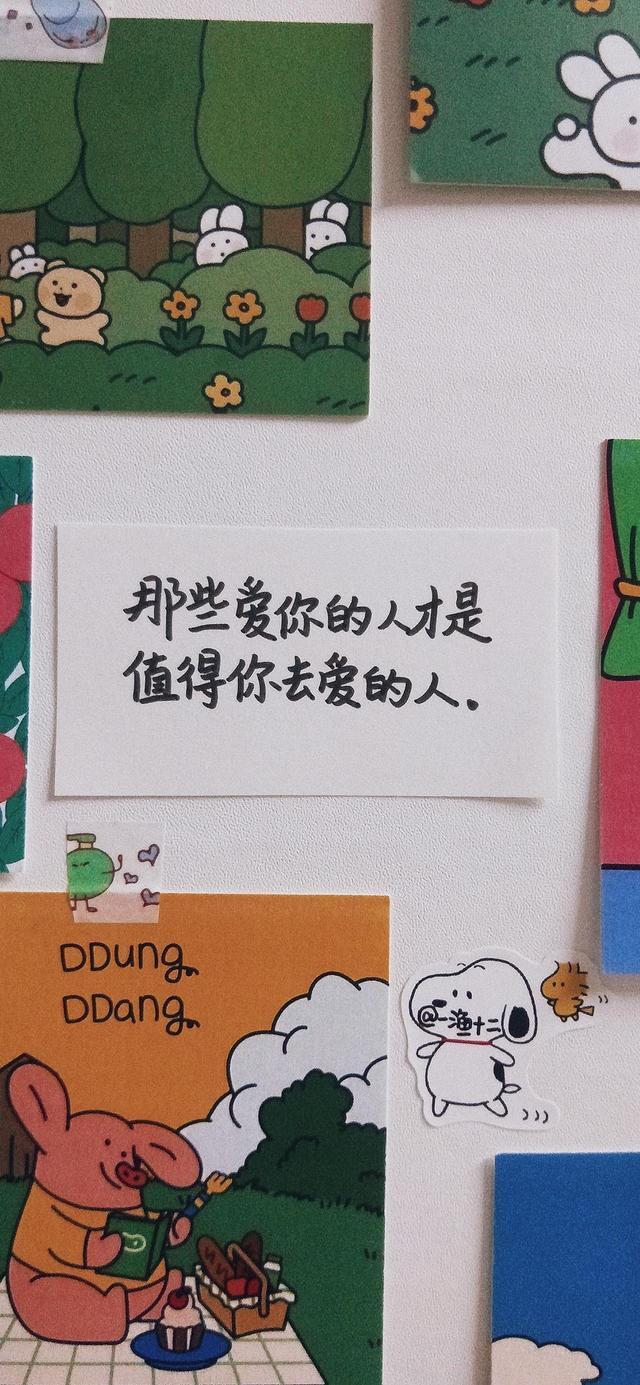 那些爱你的人才是
值得你去爱的人.
DDung
DDang
@一渔十二